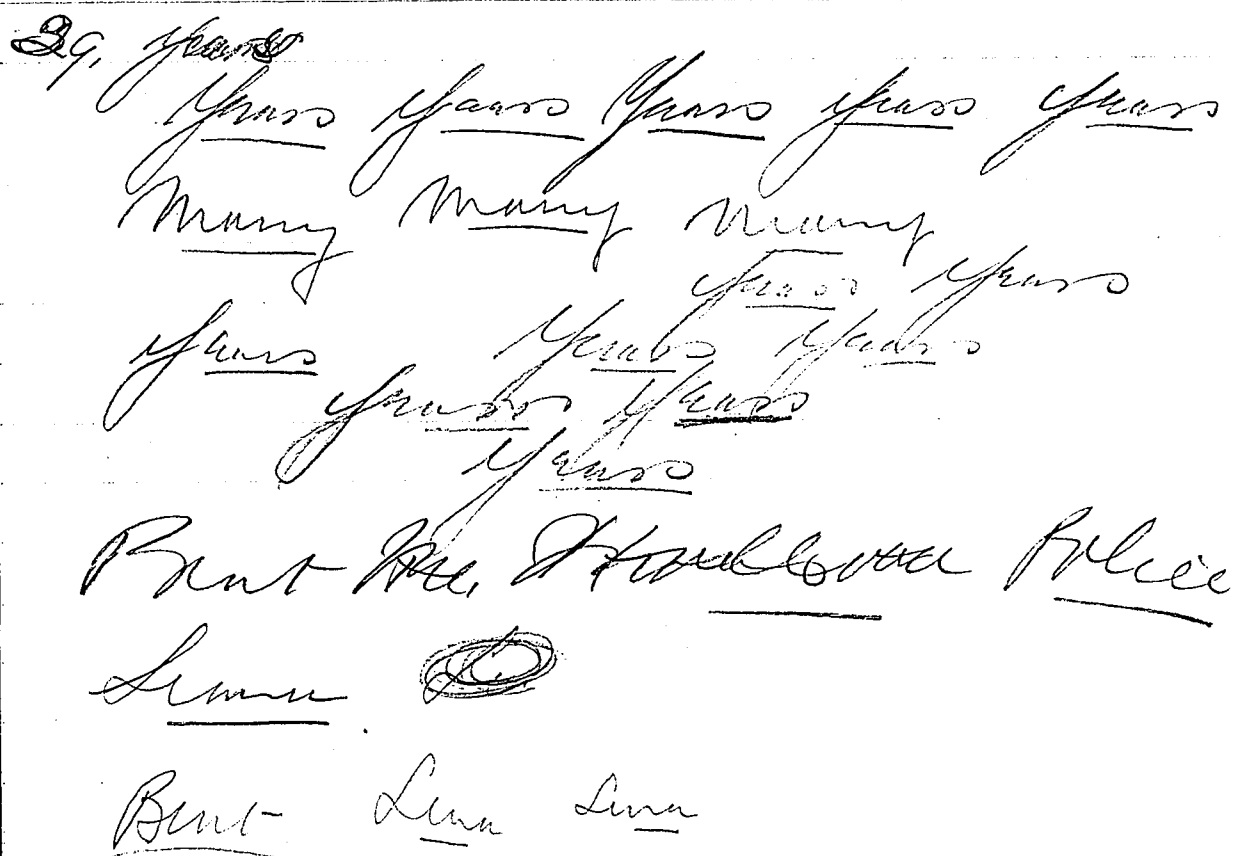 39, years
Years Years Years Years Years
Many Many Many
Years Years
Years Years Years
Years Years
Years
Brent Police
Brent Lena Lena